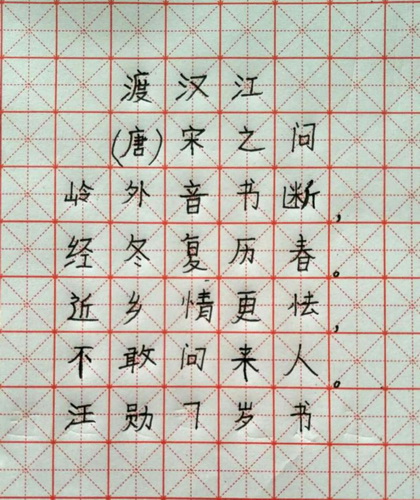 渡汉江
(唐)宋之问
岭外音书断,
经冬复历春。
近乡情更怯,
不敢问来人。
汪勋7岁书